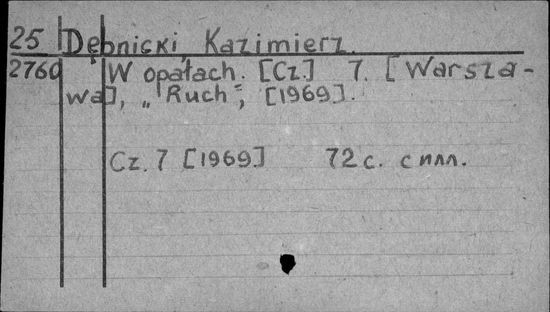 25 Dębnicki, Kazimierz.
2760 W opałach. [Cz.] 7. [Warsza-
wa], „Ruch", [1969].
Cz. 7 [1969.] 72 с. с илл.